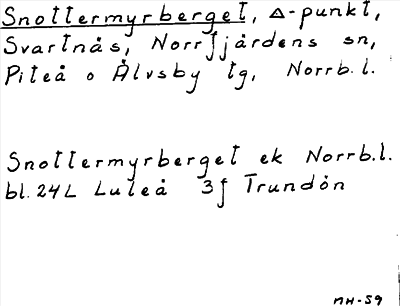 Snottermyrberget, Δ-punkt,
Svartnäs, Norrfjärdens sn,
Piteå o Älvsby tg, Norrb.l.
Snottermyrberget ek Norrb.l.
bl. 24L Luleå 3j Trundön
MH-59